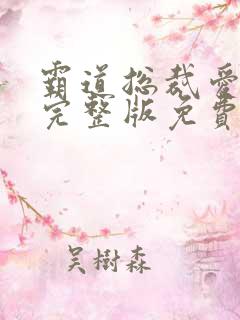 霸道总裁爱
完整版免費
吴樹森